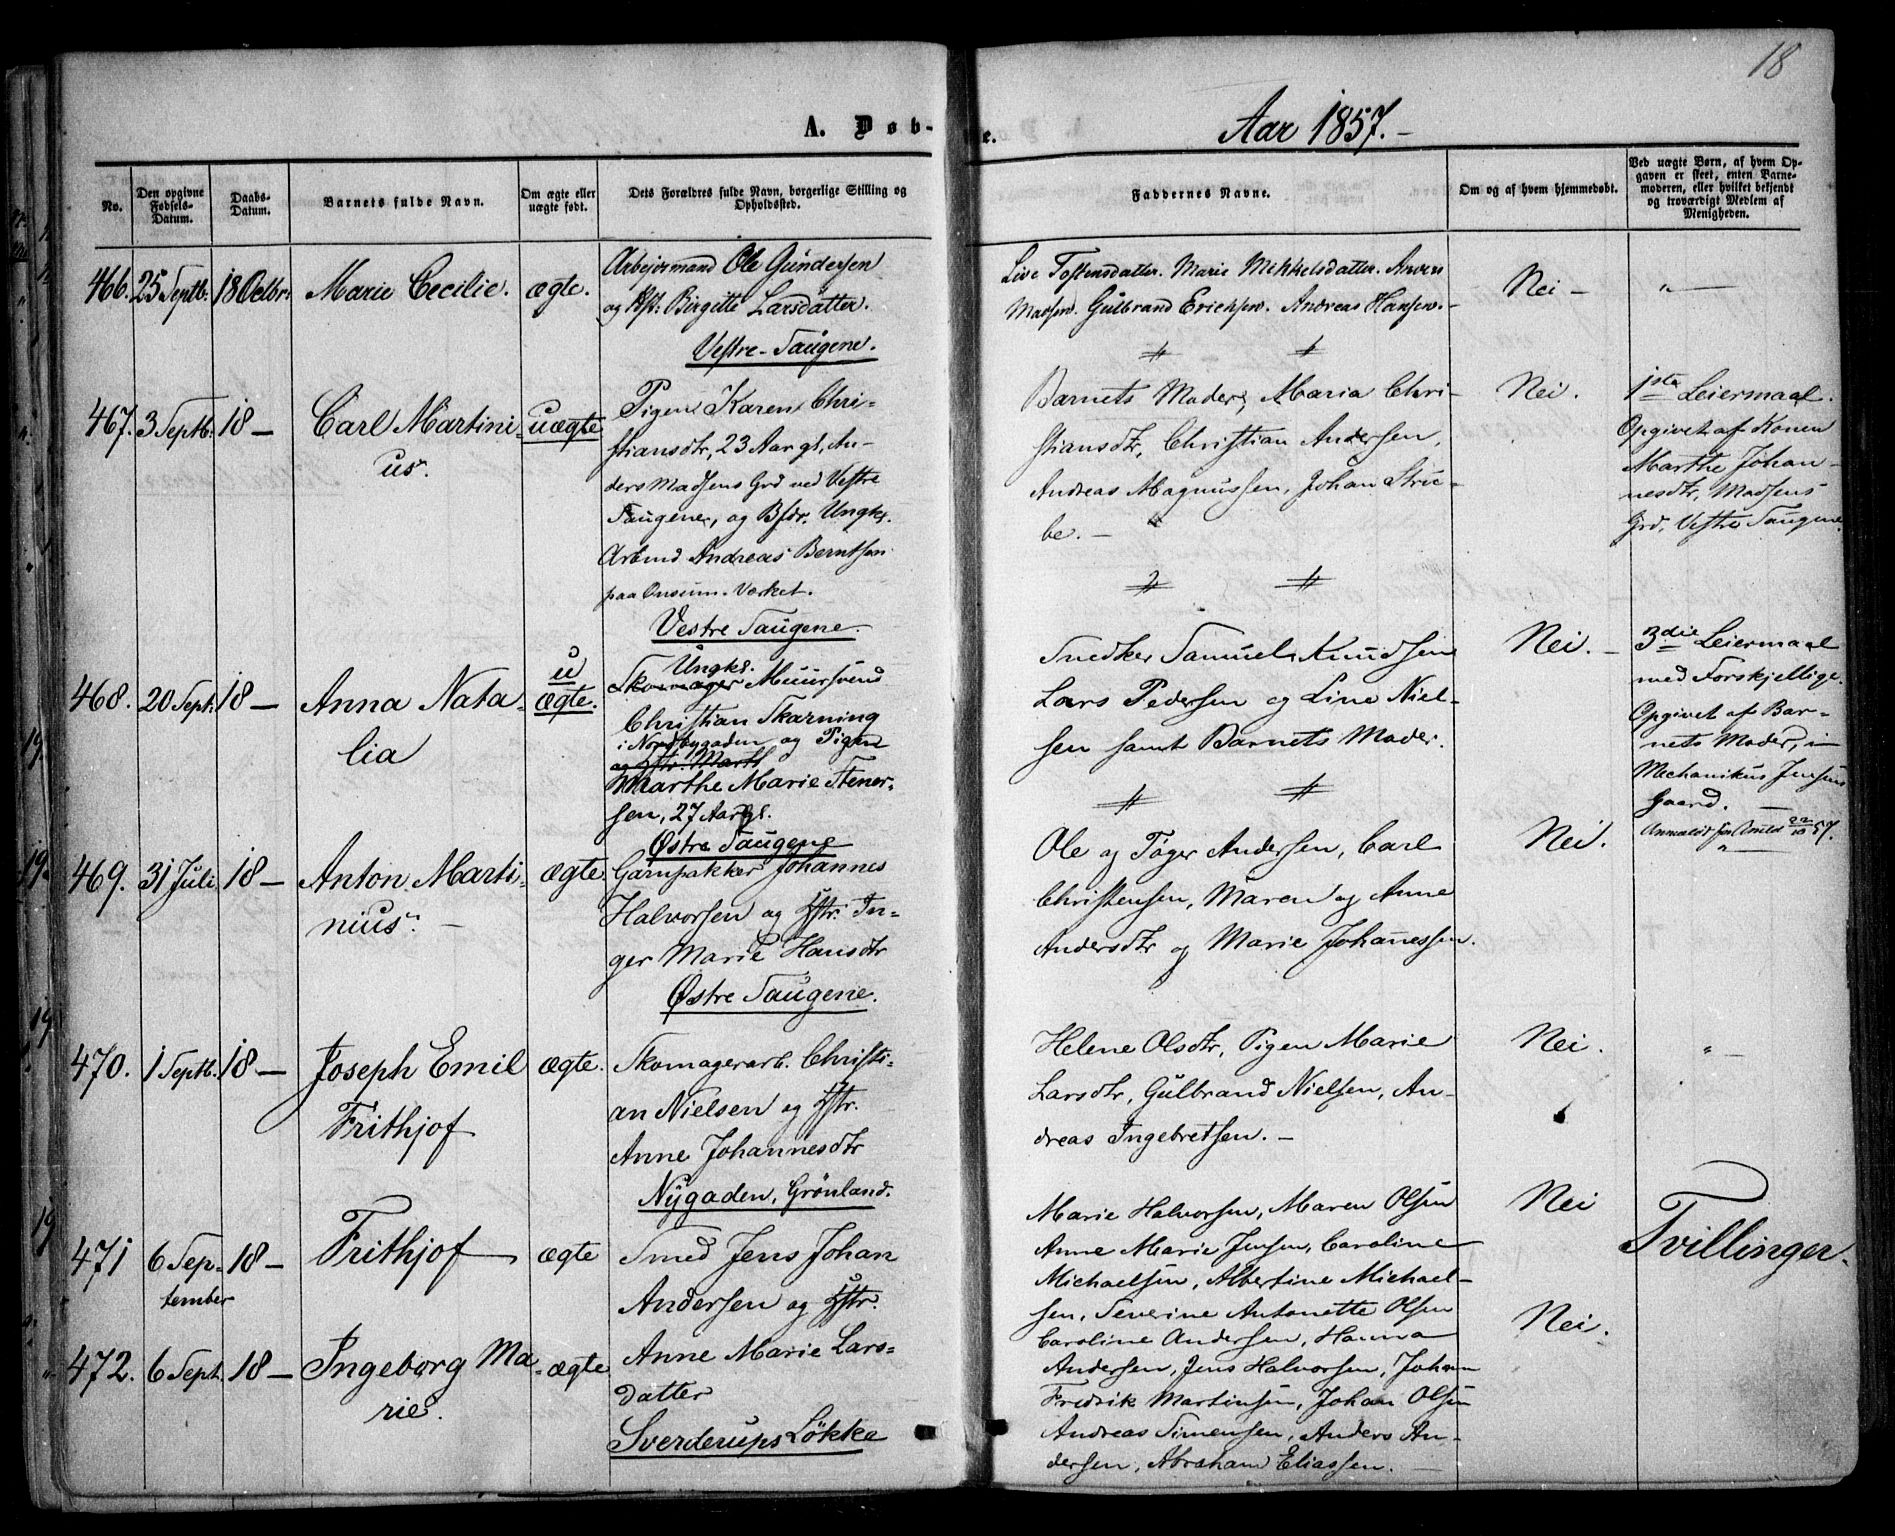 18
A. Døb-
e.
Aar 1857.-
No.
Den opgivne Fødsels-Datum.
Daabs-Datum.
Barnets fulde Navn.
Om ægte eller uægte født.
Dets Forældres fulde Navn, borgerlige Stilling og Opholdssted.
Faddernes Navne.
Om og af hvem hjemmedøbt.
Ved uægte Børn, af hvem Opgaven er skeet, enten Barnemoderen, eller hvilket bekjendt og troværdigt Medlem af Menigheden.
466. 25 Septb. 18 Octbr. Marie Cecilie. ægte.
Arbejdsmand Ole Gundersen
og Hst. Birgitte Larsdatter.
Vestre-Taugene.
Live Tostensdatter. Marie Mikkelsdatter. Anders
Madsen. Gulbrand Erichsen. Andreas Hansen.
Nei - "
467. 3 Septb. 18 - Carl Martini-
us. uægte
Pigen Karen Chri-
stiansdtr, 23 Aar gl, An-
ders Madsens Grd ved Vestre
Taugene, og Bfdr. Ungk.
Arbmd Andreas Berntsen
paa Onsum-Værket.
Vestre Taugene.
Barnets Moder, Maria Chri-
stiansdtr, Christian Andersen,
Andreas Magnussen, Johan Stru-
be. -
Nei.
1ste Leiermaal.
Opgivet af Konen
Marthe Johan-
nesdtr, Madsens
Grd. Vestre Taugene
468. 20 Sept. 18 - Anna Nata-
lia u ægte.
Ungk.
Skomager Muursvend
Christian Skarning
i Nordbygaden og Pigen
og Hstr. Marth
Marthe Marie Stener-
sen, 27 Aar gl.
Østre Taugene
Snedker Samuel Knudsen
Lars Pedersen og Line Niel-
sen samt Barnets Moder.
Nei. -
3die Leiermaal
med Forskjellige.
Opgivet af Bar-
nets Moder, i
Mechanikus Jensens
Gaard.
Anmeldt for 22/10 57.
469. 31 Juli 18 - Anton Marti-
nius. - ægte.
Garnpakker Johannes
Halvorsen og Hstr. In-
ger Marie Hansdtr
Østre Taugene.
Ole og Tøger Andersen, Carl
Christensen, Maren og Anne
Andersdtr og Marie Johannessen.
Nei. "
470. 1 Septb. 18 - Joseph Emil
Frithjof ægte.
Skomagerarb. Christi-
an Nielsen og Hstr.
Anne Johannesdtr
Nygaden, Grønland.
Helene Olsdtr, Pigen Marie
Larsdtr, Gulbrand Nielsen, An-
dreas Ingebretsen. -
Nei. " -
471 6 Sep-
tember 18 - Frithjof ægte
Smed Jens Johan
Andersen og Hstr.
472. 6 Sept. 18 - Ingeborg Ma-
rie. ægte
Anne Marie Lars-
datter
Sverderups Løkke
Marie Halvorsen, Maren Olsen
Anne Marie Jensen, Caroline
Michaelsen, Albertine Michael-
sen, Severine Antonette Olsen
Caroline Andersen, Hanna
Andersen, Jens Halvorsen, Johan
Fredrik Martinsen, Johan Olsen
Andreas Simensen, Anders An-
dersen, Abraham Eliassen.
Nei
Nei.
Tvillinger.